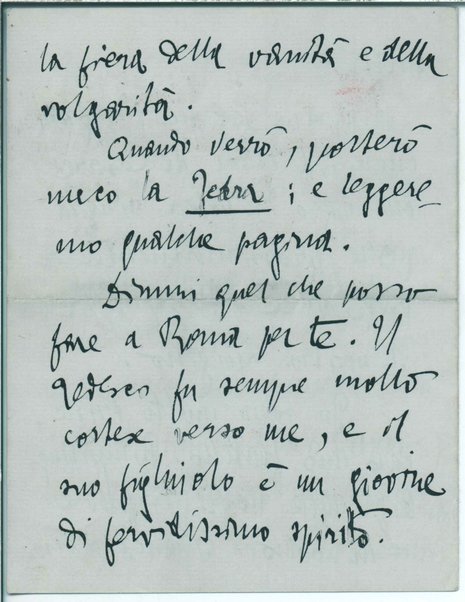 la fiera della vanità e della
volgarità.
Quando verrò, porterò
meco la Fedra; e leggere-
mo qualche pagina.
Dimmi quel che posso
fare a Roma per te. Il
Tedesco fu sempre molto
cortese verso me, e il
suo figliuolo è un giovine
di fervidissimo spirito.